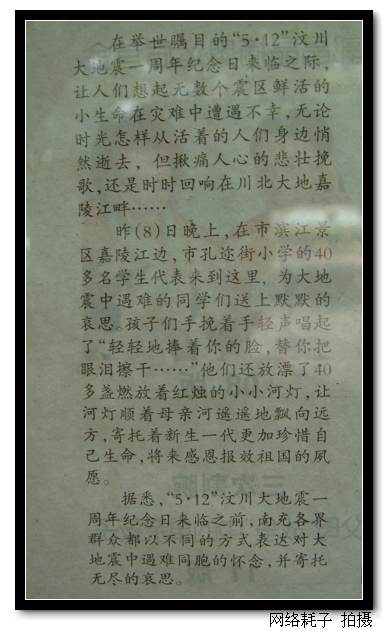 在举世瞩目的“5·12”汶川
大地震一周年纪念日来临之际,
让人们想起无数个震区鲜活的
小生命在灾难中遭遇不幸,无论
时光怎样从活着的人们身边悄
然逝去，但揪痛人心的悲壮挽
歌,还是时时回响在川北大地嘉
陵江畔……
昨(8)日晚上,在市滨江景
区嘉陵江边,市孔迩街小学的40
多名学生代表来到这里，为大地
震中遇难的同学们送上默默的
哀思。孩子们手挽着手轻声唱起
了“轻轻地捧着你的脸,替你把
眼泪擦干……”他们还放漂了40
多盏燃放着红烛的小小河灯,让
河灯顺着母亲河遥遥地飘向远
方,寄托着新生一代更加珍惜自
己生命,将来感恩报效祖国的夙
愿。
据悉,“5·12”汶川大地震一
周年纪念日来临之前,南充各界
群众都以不同的方式表达对大
地震中遇难同胞的怀念,并寄托
无尽的哀思。
网络耗子 拍摄